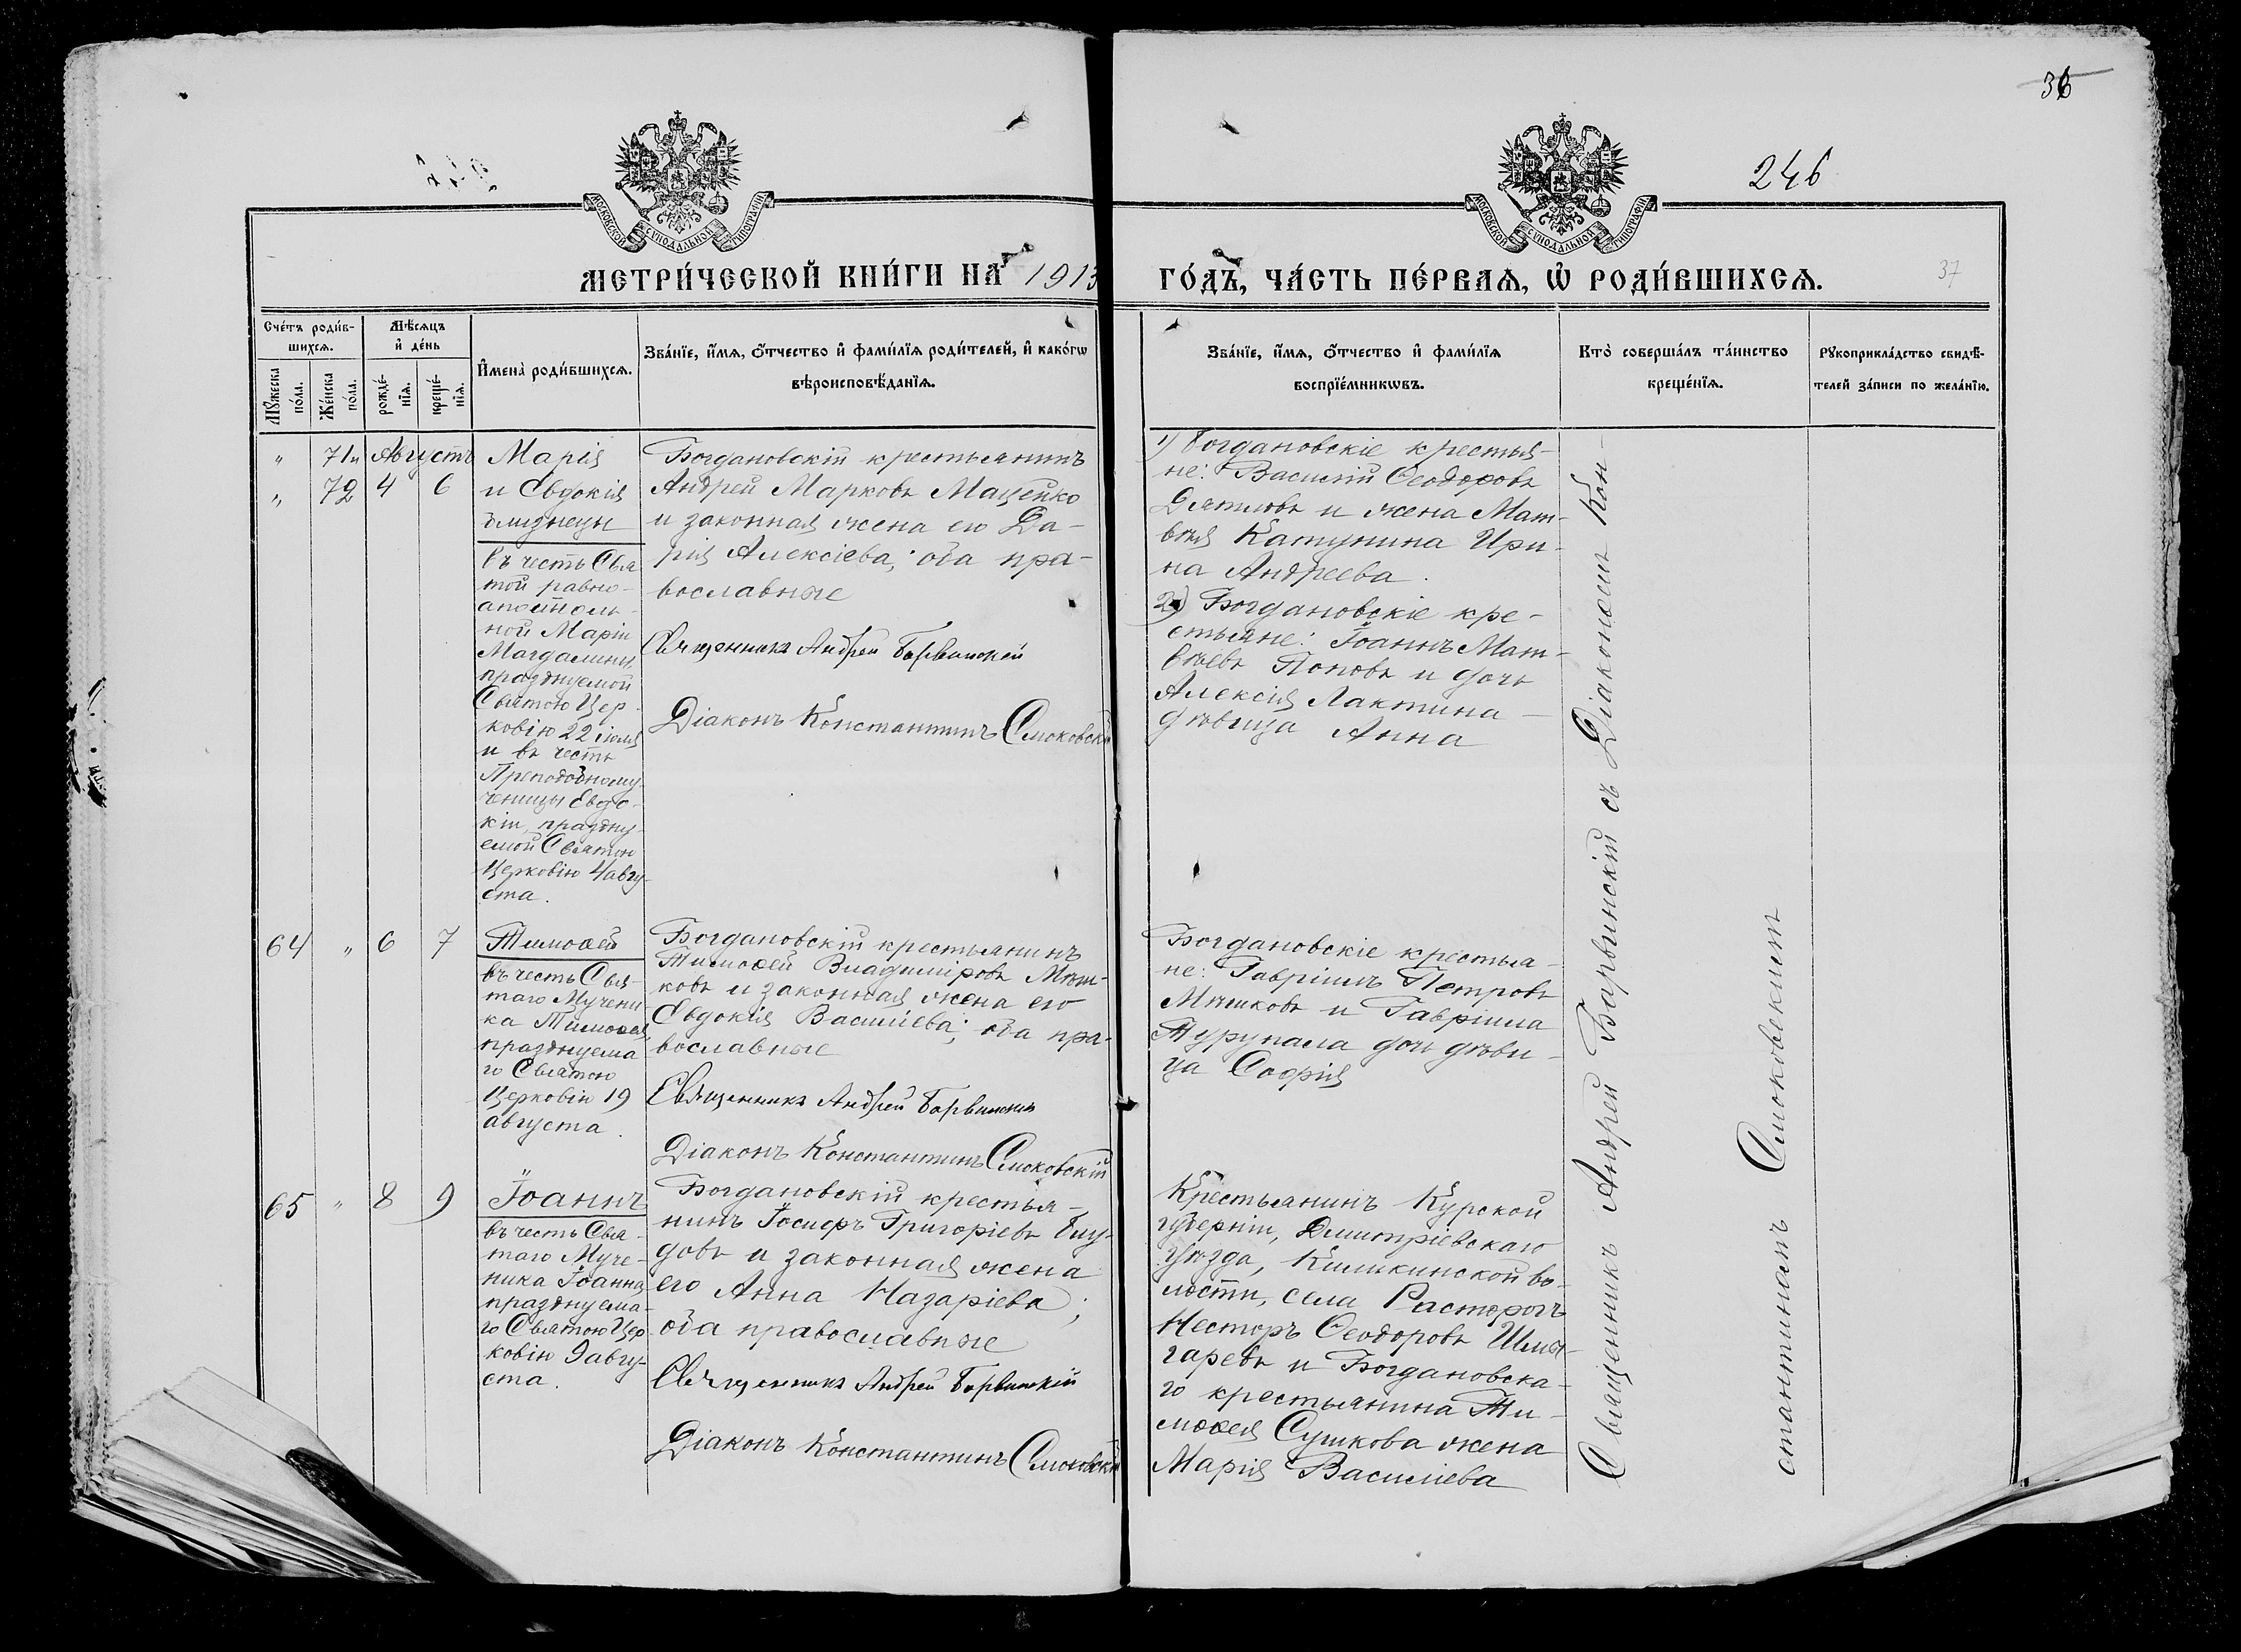 36
246
МОСКОВСКОЙ СѴНОДАЛЬНОЙ ТИПОГРАФІИ
МОСКОВСКОЙ СѴНОДАЛЬНОЙ ТИПОГРАФІИ
МЕТРИ́ЧЕСКОЙ КНИ́ГИ НА 1913
ГО́ДЪ, ЧА́СТЬ ПЕ́РВАѦ, Ѡ҆ РОДИ́ВШИХСѦ.
37
Сче́тъ роди́в-
шихсѧ.
Мѣ́сѧцъ
и҆ де́нь
Мꙋ́жеска
по́ла.
Же́нска
по́ла.
рожде́-
нїѧ.
креще́-
нїѧ.
И҆мена̀ роди́вшихсѧ.
Зва́нїе, и҆́мѧ, о҆́тчество и҆ фами́лїѧ роди́телей, и҆ како́гѡ
вѣроисповѣ́данїѧ.
Зва́нїе, и҆́мѧ, о҆́тчество и҆ фами́лїѧ
воспрїе́мникѡвъ.
Кто̀ соверша́лъ та́инство
креще́нїѧ.
Рꙋкоприкла́дство свидѣ́-
телей за́писи по жела́нїю.
" 71 и Августъ
" 72 4 6
Марія
и Евдокія
близнецы
въ честь Свя
той равно-
апостоль-
ной Маріи
Магдалины,
празднуемой
Святою Цер-
ковію 22 іюля
и въ честь
Преподобному-
ченицы Евдо-
кіи, праздну-
емой Святою
Церковію 4 авгу-
ста.
Богдановскій крестьянинъ
Андрей Марковъ Маценко
и законная жена его Да-
рія Алексіева; оба пра-
вославные
Священникъ Андрей Барвинскій
Діаконъ Константинъ Смоковскій
1) Богдановскіе крестья-
не: Василій Ѳеодоровъ
Дятловъ и жена Мат-
вѣя Катунина Ири-
на Андреева.
2) Богдановскіе кре-
стьяне: Іоаннъ Мат-
вѣевъ Поповъ и дочь
Алексія Лактина
дѣвица Анна
64 " 6 7
Тимоѳей
въ честь Свя-
таго Мучени-
ка Тимоѳея,
празднуема
го Святою
Церковію 19
августа.
Богдановскій крестьянинъ
Тимоѳей Владиміровъ Мѣш-
ковъ и законная жена его
Евдокія Василіева; оба пра-
вославные
Священникъ Андрей Барвинскій
Діаконъ Константинъ Смоковскій
Богдановскіе крестья-
не: Гавріилъ Петровъ
Мѣшковъ и Гавріила
Турупала дочь дѣви-
ца Софія
65 " 8 9
Іоаннъ
въ честь Свя-
таго Муче-
ника Іоанна
празднуема-
го Святою Цер
ковію 9 авгу-
ста.
Богдановскій крестья-
нинъ Іосифъ Григоріевъ Блу-
довъ и законная жена
его Анна Назаріева;
оба православные
Священникъ Андрей Барвинскій
Діаконъ Константинъ Смоковскій
Крестьянинъ Курской
губерніи, Дмитріевскаго
уѣзда, Киликинской во-
лости, села Расторогъ
Несторъ Ѳеодоровъ Шмы-
гаревъ и Богдановска-
го крестьянина Ти-
моѳея Сушкова жена
Марія Василіева
Священникъ Андрей Барвинскій съ Діакономъ Кон-
стантиномъ Смоковскимъ